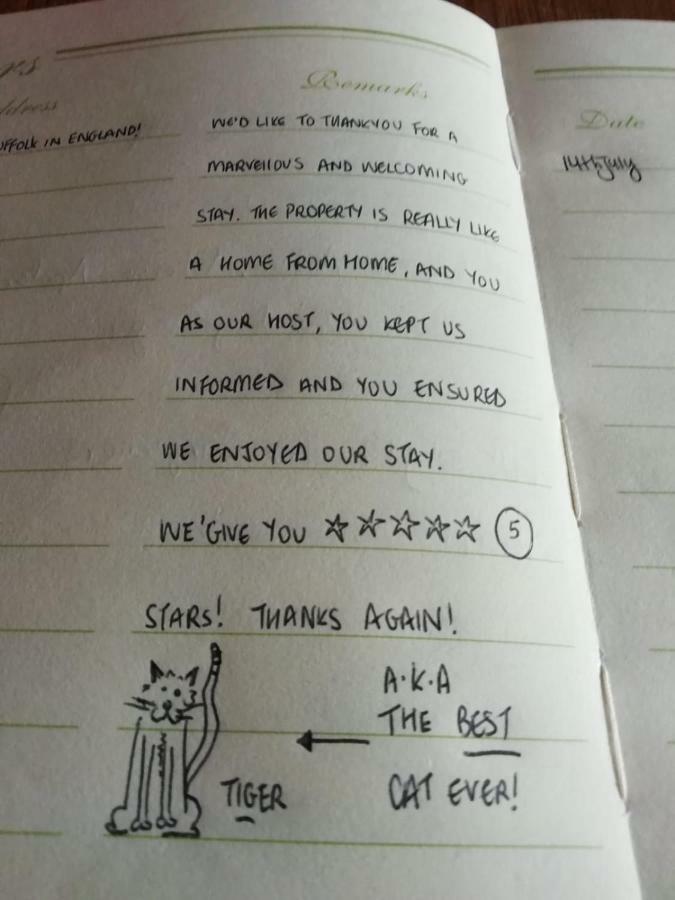 Remarks
Date
UFFOLK IN ENGLAND!
WE'D LIKE TO THANKYOU FOR A
14th July
MARVELLOUS AND WELCOMING
STAY. THE PROPERTY IS REALLY LIKE
A HOME FROM HOME, AND YOU
AS OUR HOST, YOU KEPT US
INFORMED AND YOU ENSURED
WE ENJOYED OUR STAY.
WE'GIVE YOU ☆☆☆☆☆ 5
STARS! THANKS AGAIN!
A.K.A
THE BEST
CAT EVER!
TIGER